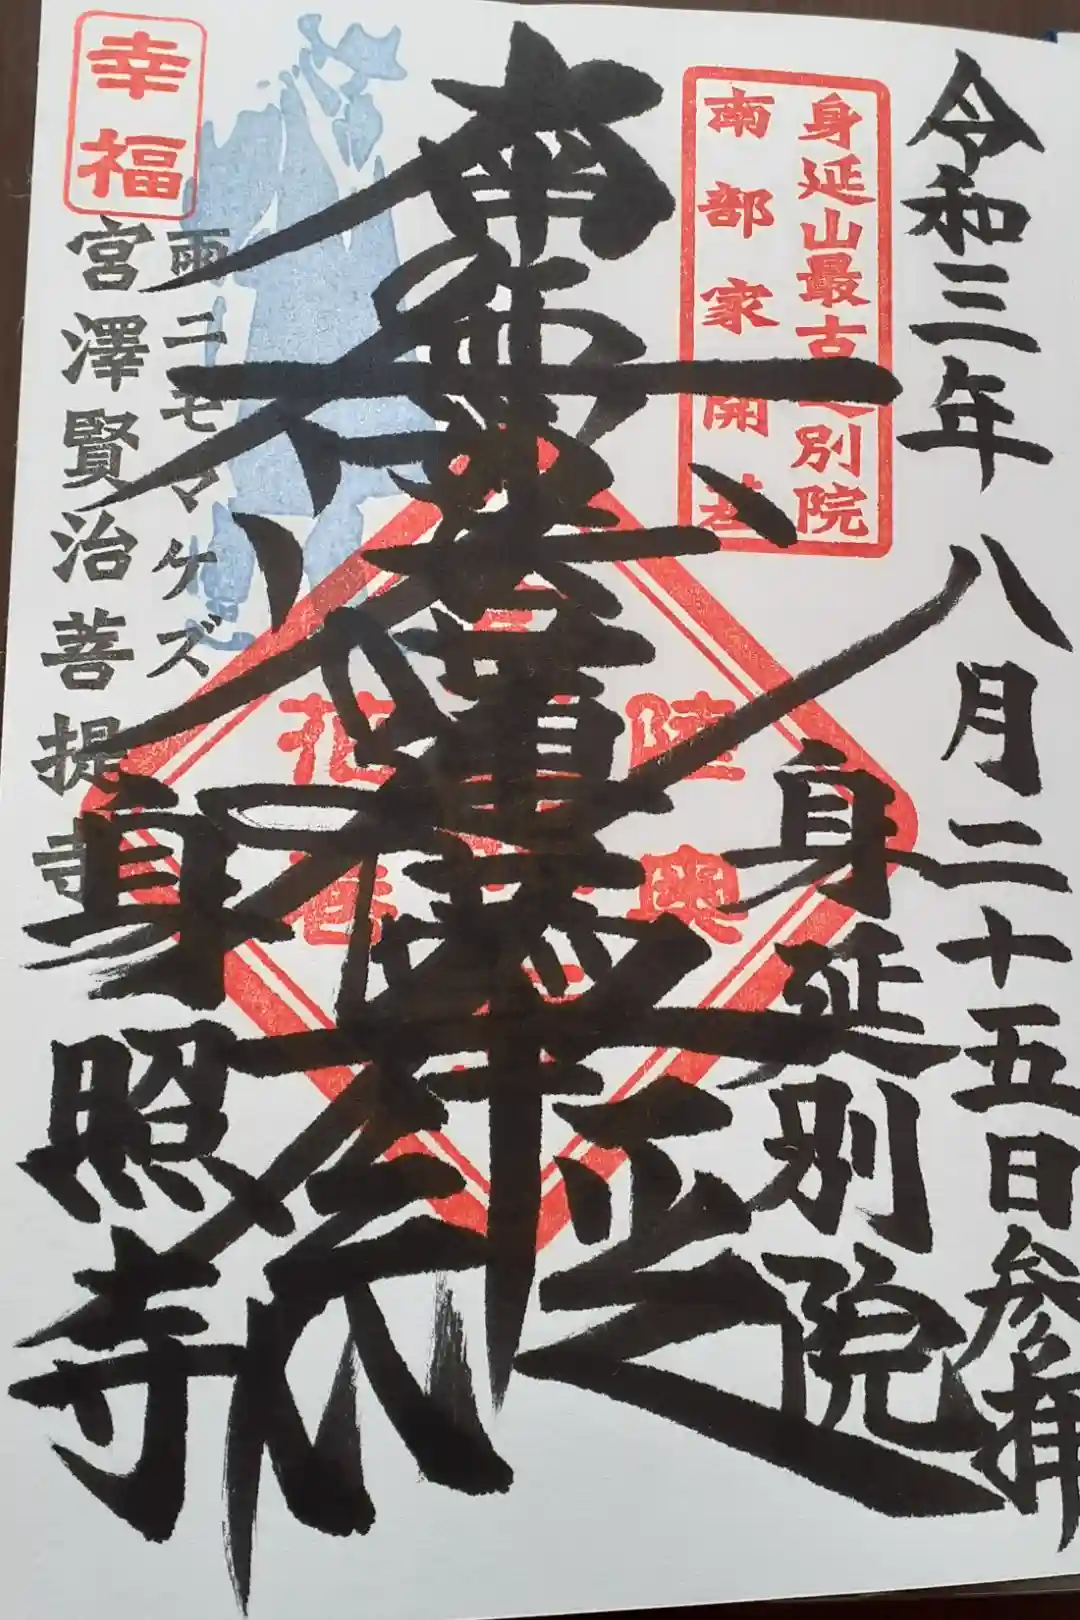 令和三年八月二十五日参拝
身延山最古之別院
南部家開基
身延別院
南無妙法蓮華経
陸奥
花巻
幸福
雨ニモマケズ
宮澤賢治菩提寺
身照寺